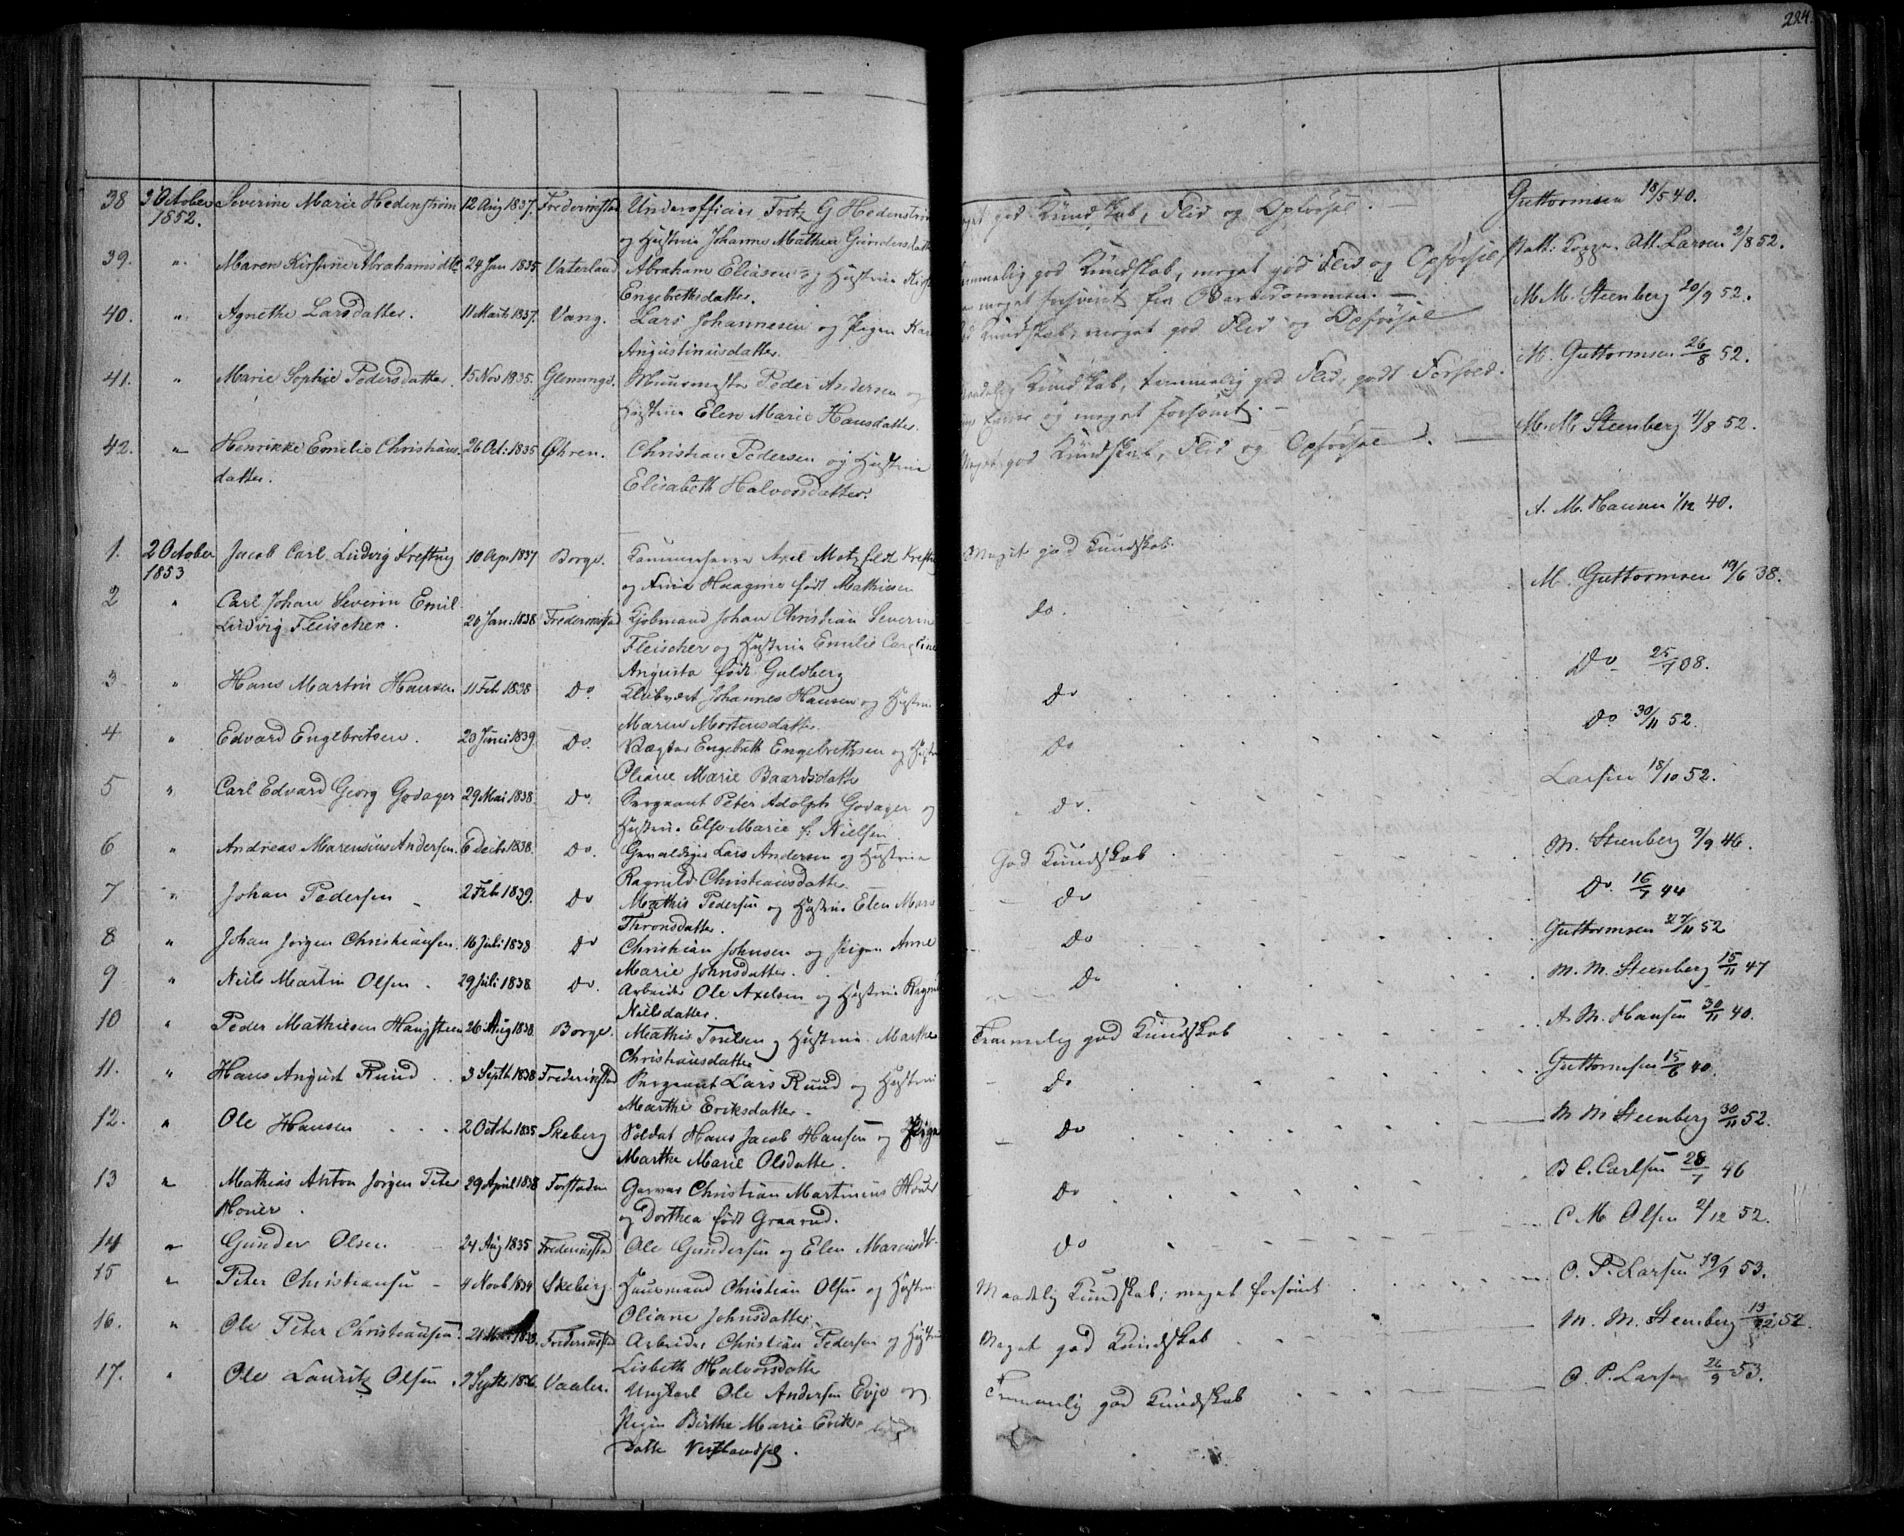 224.
38 3 October Severine Marie Hedenstrøm 12 Aug 1837. Frederikstad Underofficier Fritz G Hedenstrøm meget god Kundskab, Flid og Opførsel. — Guttormsen 18/5 40.
1852. og Hustrue Johanne Mathea Gundersdatter
39. " Maren Kirstine Abrahamsdtr. 24 Jan 1835 Vaterland Abraham Eliasen og Hustrue temmelig god Kundskab, meget god Flid og Opførsel, Att. Larsen 2/8 52.
Engebrethsdatter. meget forsømt fra Barndommen. —
40. " Agnethe Larsdatter. 11 Marts 1837. Vang. Lars Johannesen og Pigen god Kundskab, meget god Flid og Opførsel M. M. Steenberg 20/9 52.
Augustinusdatter.
41. " Marie Sophie Pedersdatter. 15 Nov 1835. Glemminge. Muurmester Peder Andersen og Kundskab, temmelig god Flid, godt Forhold. M. Guttormsen 26/8 52.
Hustrue Elen Marie Hansdatter. og meget forsømt. —
42. " Henrikke Emilie Christians- 26 Oct: 1835 Øhren. Christian Pedersen og Hustrue Meget god Kundskab, Flid og Opførsel. — M. M. Steenberg 4/8 52.
datter. Elisabeth Halvorsdatter.
1. 2 October Jacob Carl Ludvig Krefting 10 Ap. 1837 Borge. Kammerherre Axel Motzfeldt Krefting Meget god Kundskab. A. M. Hansen 1/12 40.
1853 og Frue født Mathiesen
2 " Carl Johan Severin Emil
Ludvig Fleischer. 20 Jan: 1838 Frederikstad Kjøbmand Johan Christian Severin do. M. Guttormsen 19/6 38.
Fleischer og Hustrue Emilie Caroline
Augusta født Guldberg
3 " Hans Martin Hansen 11 Feb 1838 Do. Johannes Hansen og Hustrue do Do 25/1 08.
Maren Mortensdatter
4 " Edvard Engebretsen. 20 Juni 1839. Do. Vægter Engebreth Engebrethsen og Hustrue do Do 30/11 52.
Oliane Marie Baardsdatter
5 " Carl Edvard Georg Godager 29 Mai 1838. Do. Sergeant Peter Adolph Godager og do. Larsen 18/10 52.
Hustrue Else Marie f. Nielsen
6 " Andreas Marensius Andersen. 6 Decbr 1838. Do. Gevaldiger Lars Andersen og Hustrue God Kundskab M. Steenberg 9/9 46.
Ragnild Christiansdatter
7 " Johan Pedersen 2 Feb 1839. Do Mathis Pedersen og Hustrue Elen Marie — do Do. 16/7 44
Thronsdatter.
8 " Johan Jørgen Christiansen. 16 Juli 1838 Do Christian Johnsen og Pigen Anne — do Guttormsen 27/11 52
Marie Johnsdatter.
9 " Niels Martin Olsen. 29 Juli 1838. Do. Arbeider Ole Axelsen og Hustrue — do M. M. Steenberg 15/11 47
Nielsdatter.
10 " Peder Mathiesen Haugsteen 26 Aug 1838 Borge. Mathis Troelsen og Hustrue Marthe Temmelig god Kundskab A. M. Hansen 30/11 40.
Christiansdatter
11. " Hans August Ruud 3 Septb 1838 Frederikstad Sergeant Lars Ruud og Hustrue — do Guttormsen 15/6 40.
Marthe Eriksdatter.
12. " Ole Hansen 2 Octbr 1835 Skeberg Soldat Hans Jacob Hansen og Pige — do M M Steenberg 30/11 52.
Marthe Marie Olsdatter.
13 " Mathias Anton Jørgen Peter 29 April 1838 Forstaden Garver Christian Martinius — do B C. Carlsen 28/1 46
Høuer. og Dorthea født Graarud.
14 " Gunder Olsen 24 Aug 1835 Frederikstad Ole Gundersen og Elen do C M Olsen 2/12 52.
15 " Peter Christiansen 4 Novb 1834 Skeberg. Huusmand Christian Olsen og Hustrue Maadelig Kundskab; meget forsømt O. P. Larsen 19/9 53.
Oliane Johnsdatter
16. " Ole Peter Christiansen. 21 Frederikstad Arbeider Christian Pedersen og Hustrue Meget god Kundskab M. M. Steenberg 13/12 52.
Lisbeth Halvorsdatter
17. " Ole Lauritz Olsen. Vaaler. Ungkarl Ole Andersen Evje og Temmelig god Kundskab O. P. Larsen 26/9 53.
Pigen Birthe Marie Eriks-
datter